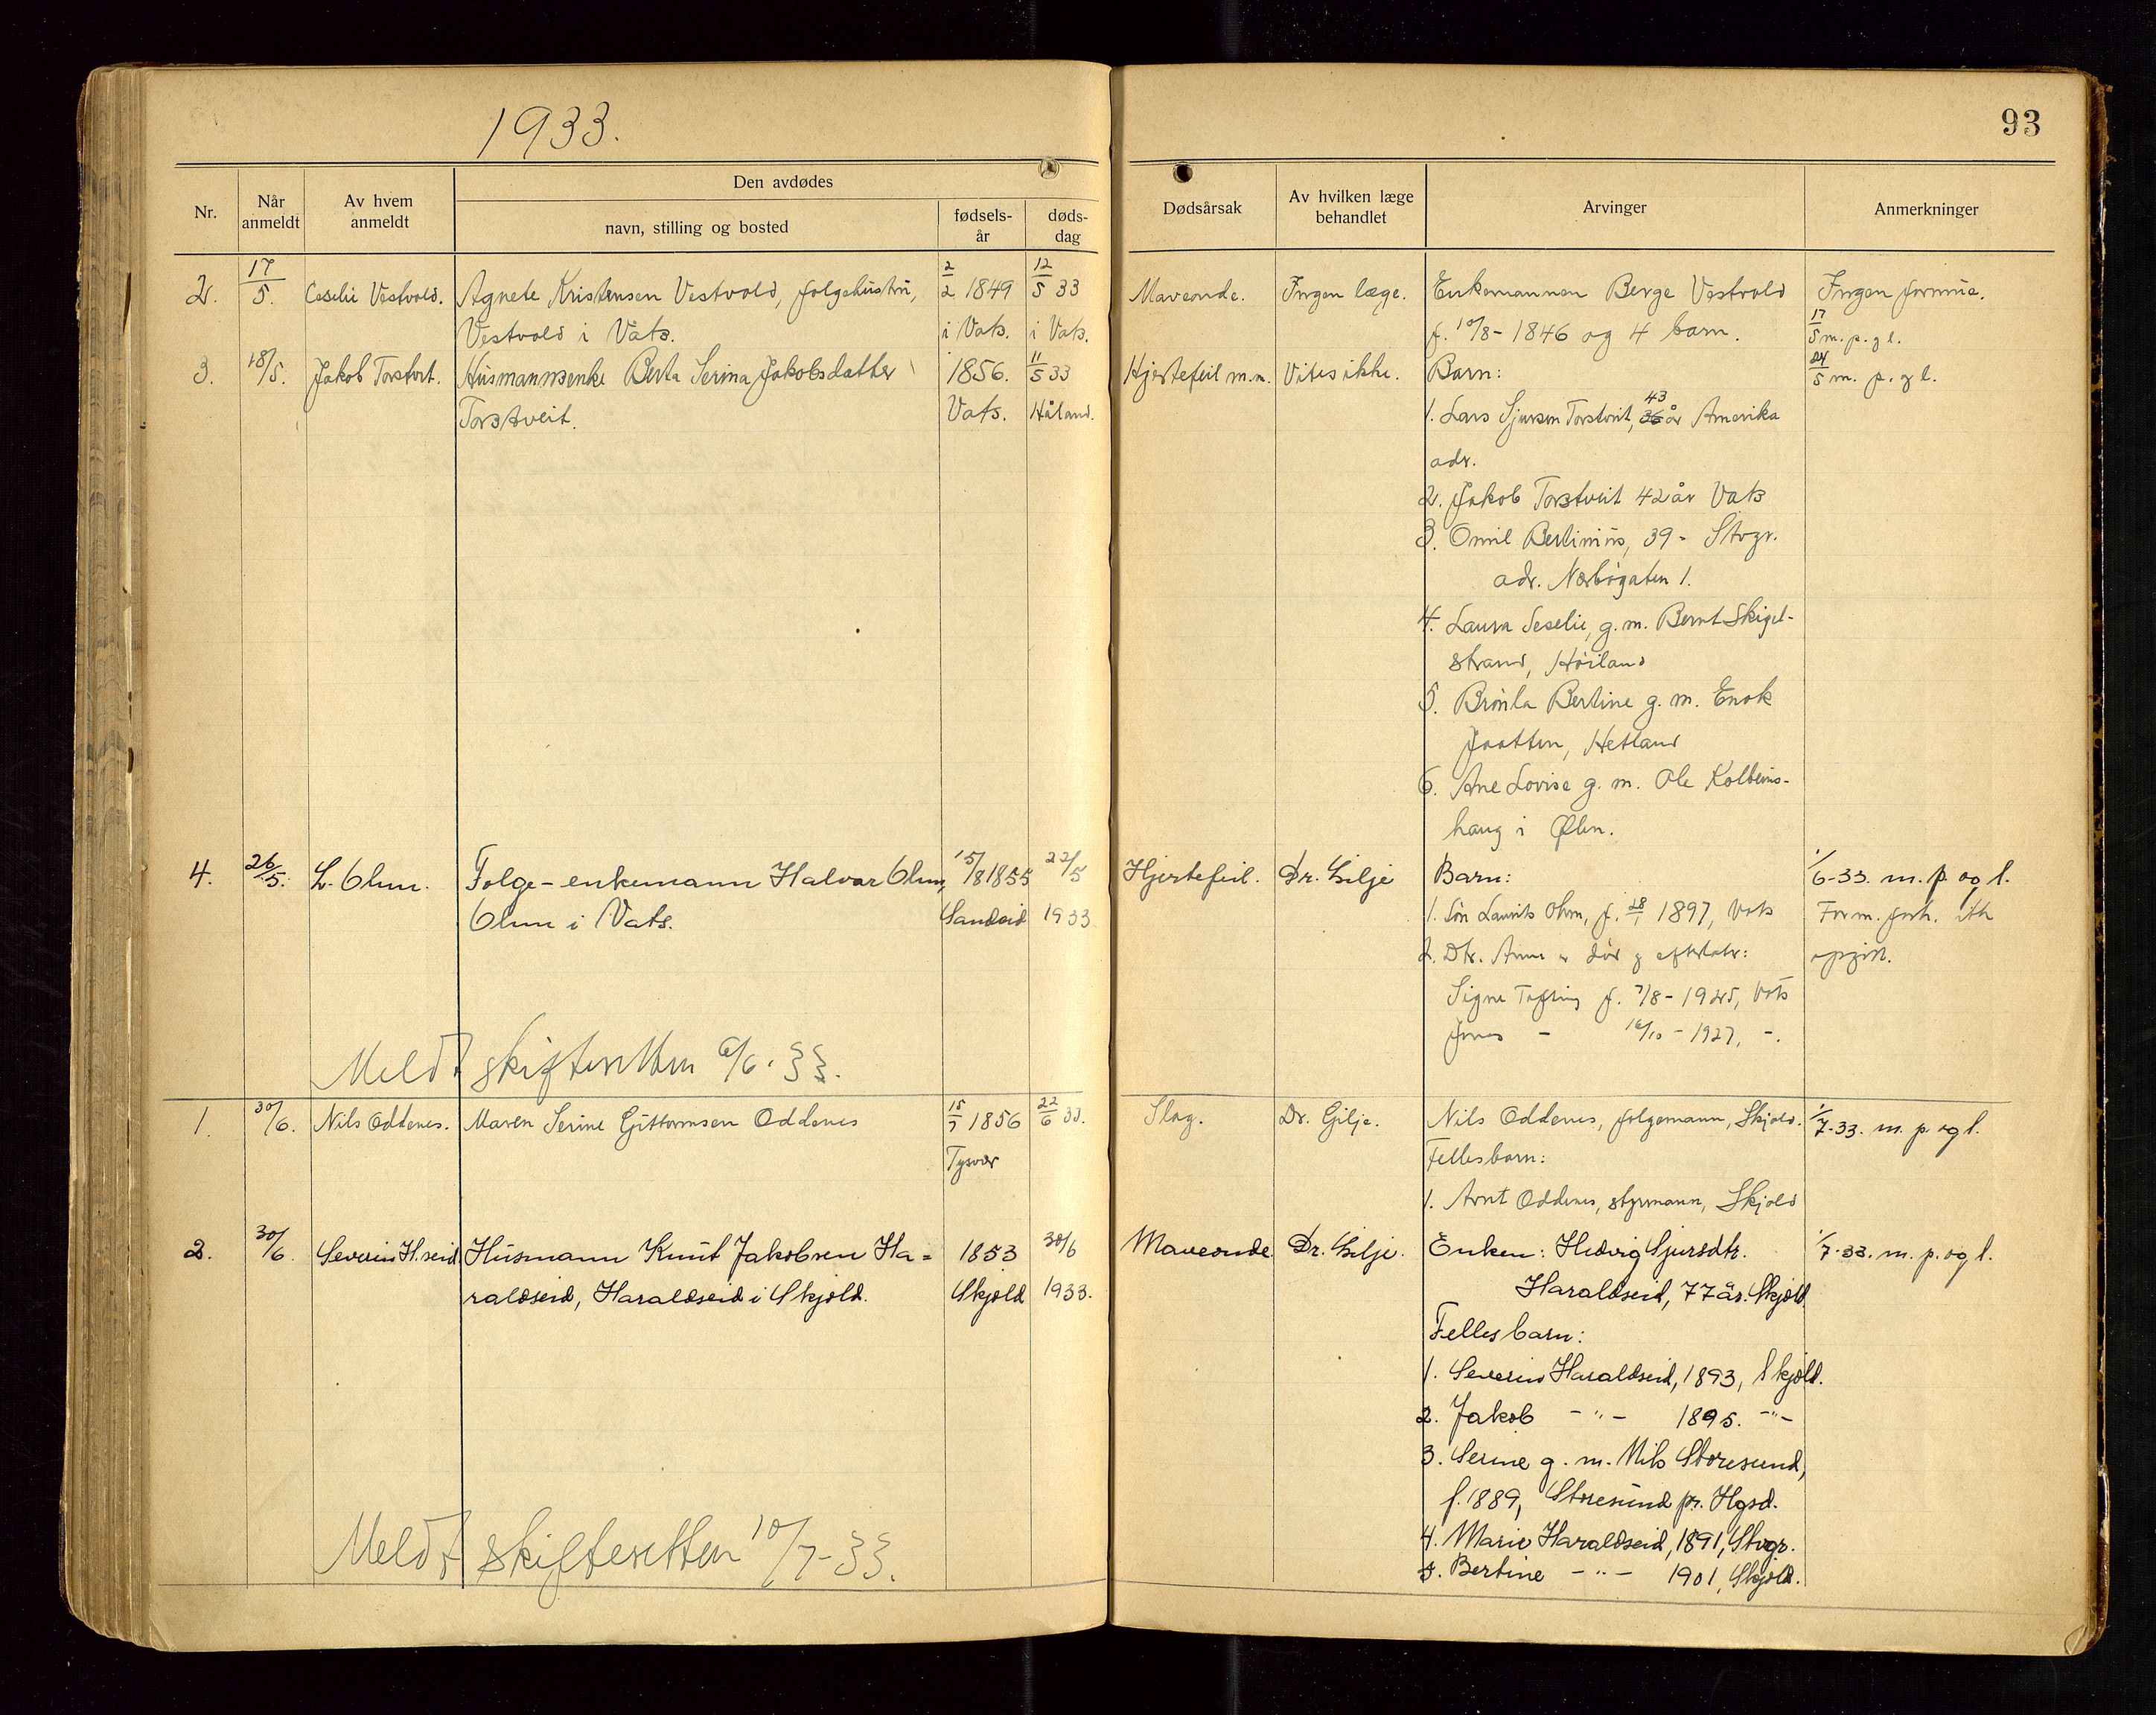 1933.
93
Nr.
Når anmeldt
Av hvem anmeldt
Den avdødes
navn, stilling og bosted
fødsels-år
døds-dag
Dødsårsak
Av hvilken læge behandlet
Arvinger
Anmerkninger
2. 17/5. Ceselie Vestvold. Agnete Kristensen Vestvold, folgehustru, 2/2 1849 12/5 33 Maveonde. Ingen læge. Enkemannen Berge Vestvold Ingen formue.
Vestvold i Vats. i Vats. i Vats. f. 10/8-1846 og 4 barn. 17/5 m. p. og l.
3. 18/5. Jakob Torstveit. Husmannsenke Berta Serina Jakobsdatter 1856. 11/5 33 Hjertefeil m.m. Vites ikke. Barn: 24/5 m. p. og l.
Torstveit. Vats. Håland. 1. Lars Sjursen Torstveit, 36 43 år Amerika
adr.
2. Jakob Torstveit 42 år Vats
3. Omil Bertinius, 39 - Stvgr.
adr. Nærbøgaten 1.
4. Laura Seselie, g. m. Bernt Skigel-
strand, Høiland
5. Brønla Bertine g. m. Enok
Jaatten, Hetland
6. Ane Lovise g. m. Ole Kolbeins-
haug i Ølen.
4. 26/5. L. Ohm. Folge-enkemann Halvar Ohm, 15/8 1855 22/5 Hjertefeil. Dr. Gilje Barn: 1/6-33. m. p. og l.
Ohm i Vats. Sandeid 1933 1. Søn Laurits Ohm, f. 28/1 1897, Vats Form. forh. ikke
2. Dtr. Anna er død og efterlater: opgitt.
Signe f. 7/8-1925, Vats
Jonas - 16/10-1927, -.
Meldt skifteretten 6/6. 33.
1. 30/6. Nils Oddenes. Maren Serine Guttormsen Oddenes 15/7 1856 22/6 33. Slag. Dr. Gilje. Nils Oddenes, folgemann, Skjold. 1/7-33. m. p. og l.
Tysvær Fellesbarn:
1. Arnt Oddenes, styrmann, Skjold
2. 30/6. Severin H.seid Husmann Knut Jakobsen Ha= 1853 30/6 Maveonde. Dr. Gilje. Enken: Hedvig Sjursdtr. 1/7-33. m. p. og l.
raldseid, Haraldseid i Skjold. Skjold 1933. Haraldseid, 77 år. Skjold
Fellesbarn:
1. Severin Haraldseid, 1893, Skjold.
2. Jakob -"- 1895. -"-
3. Serine g. m. Nils Storesund,
f. 1889, Storesund pr. Hgsd.
4. Marie Haraldseid, 1891, Stvgr.
5. Bertine -"- 1901, Skjold.
Meldt skifteretten 10/7-33.